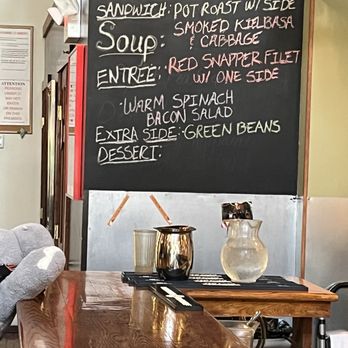 SANDWICH: POT ROAST W/ SIDE
Soup: SMOKED KIELBASA
& CABBAGE
ENTREÉ: RED SNAPPER FILET
W/ ONE SIDE
·WARM SPINACH
BACON SALAD
EXTRA SIDE:·GREEN BEANS
DESSERT:
ATTENTION